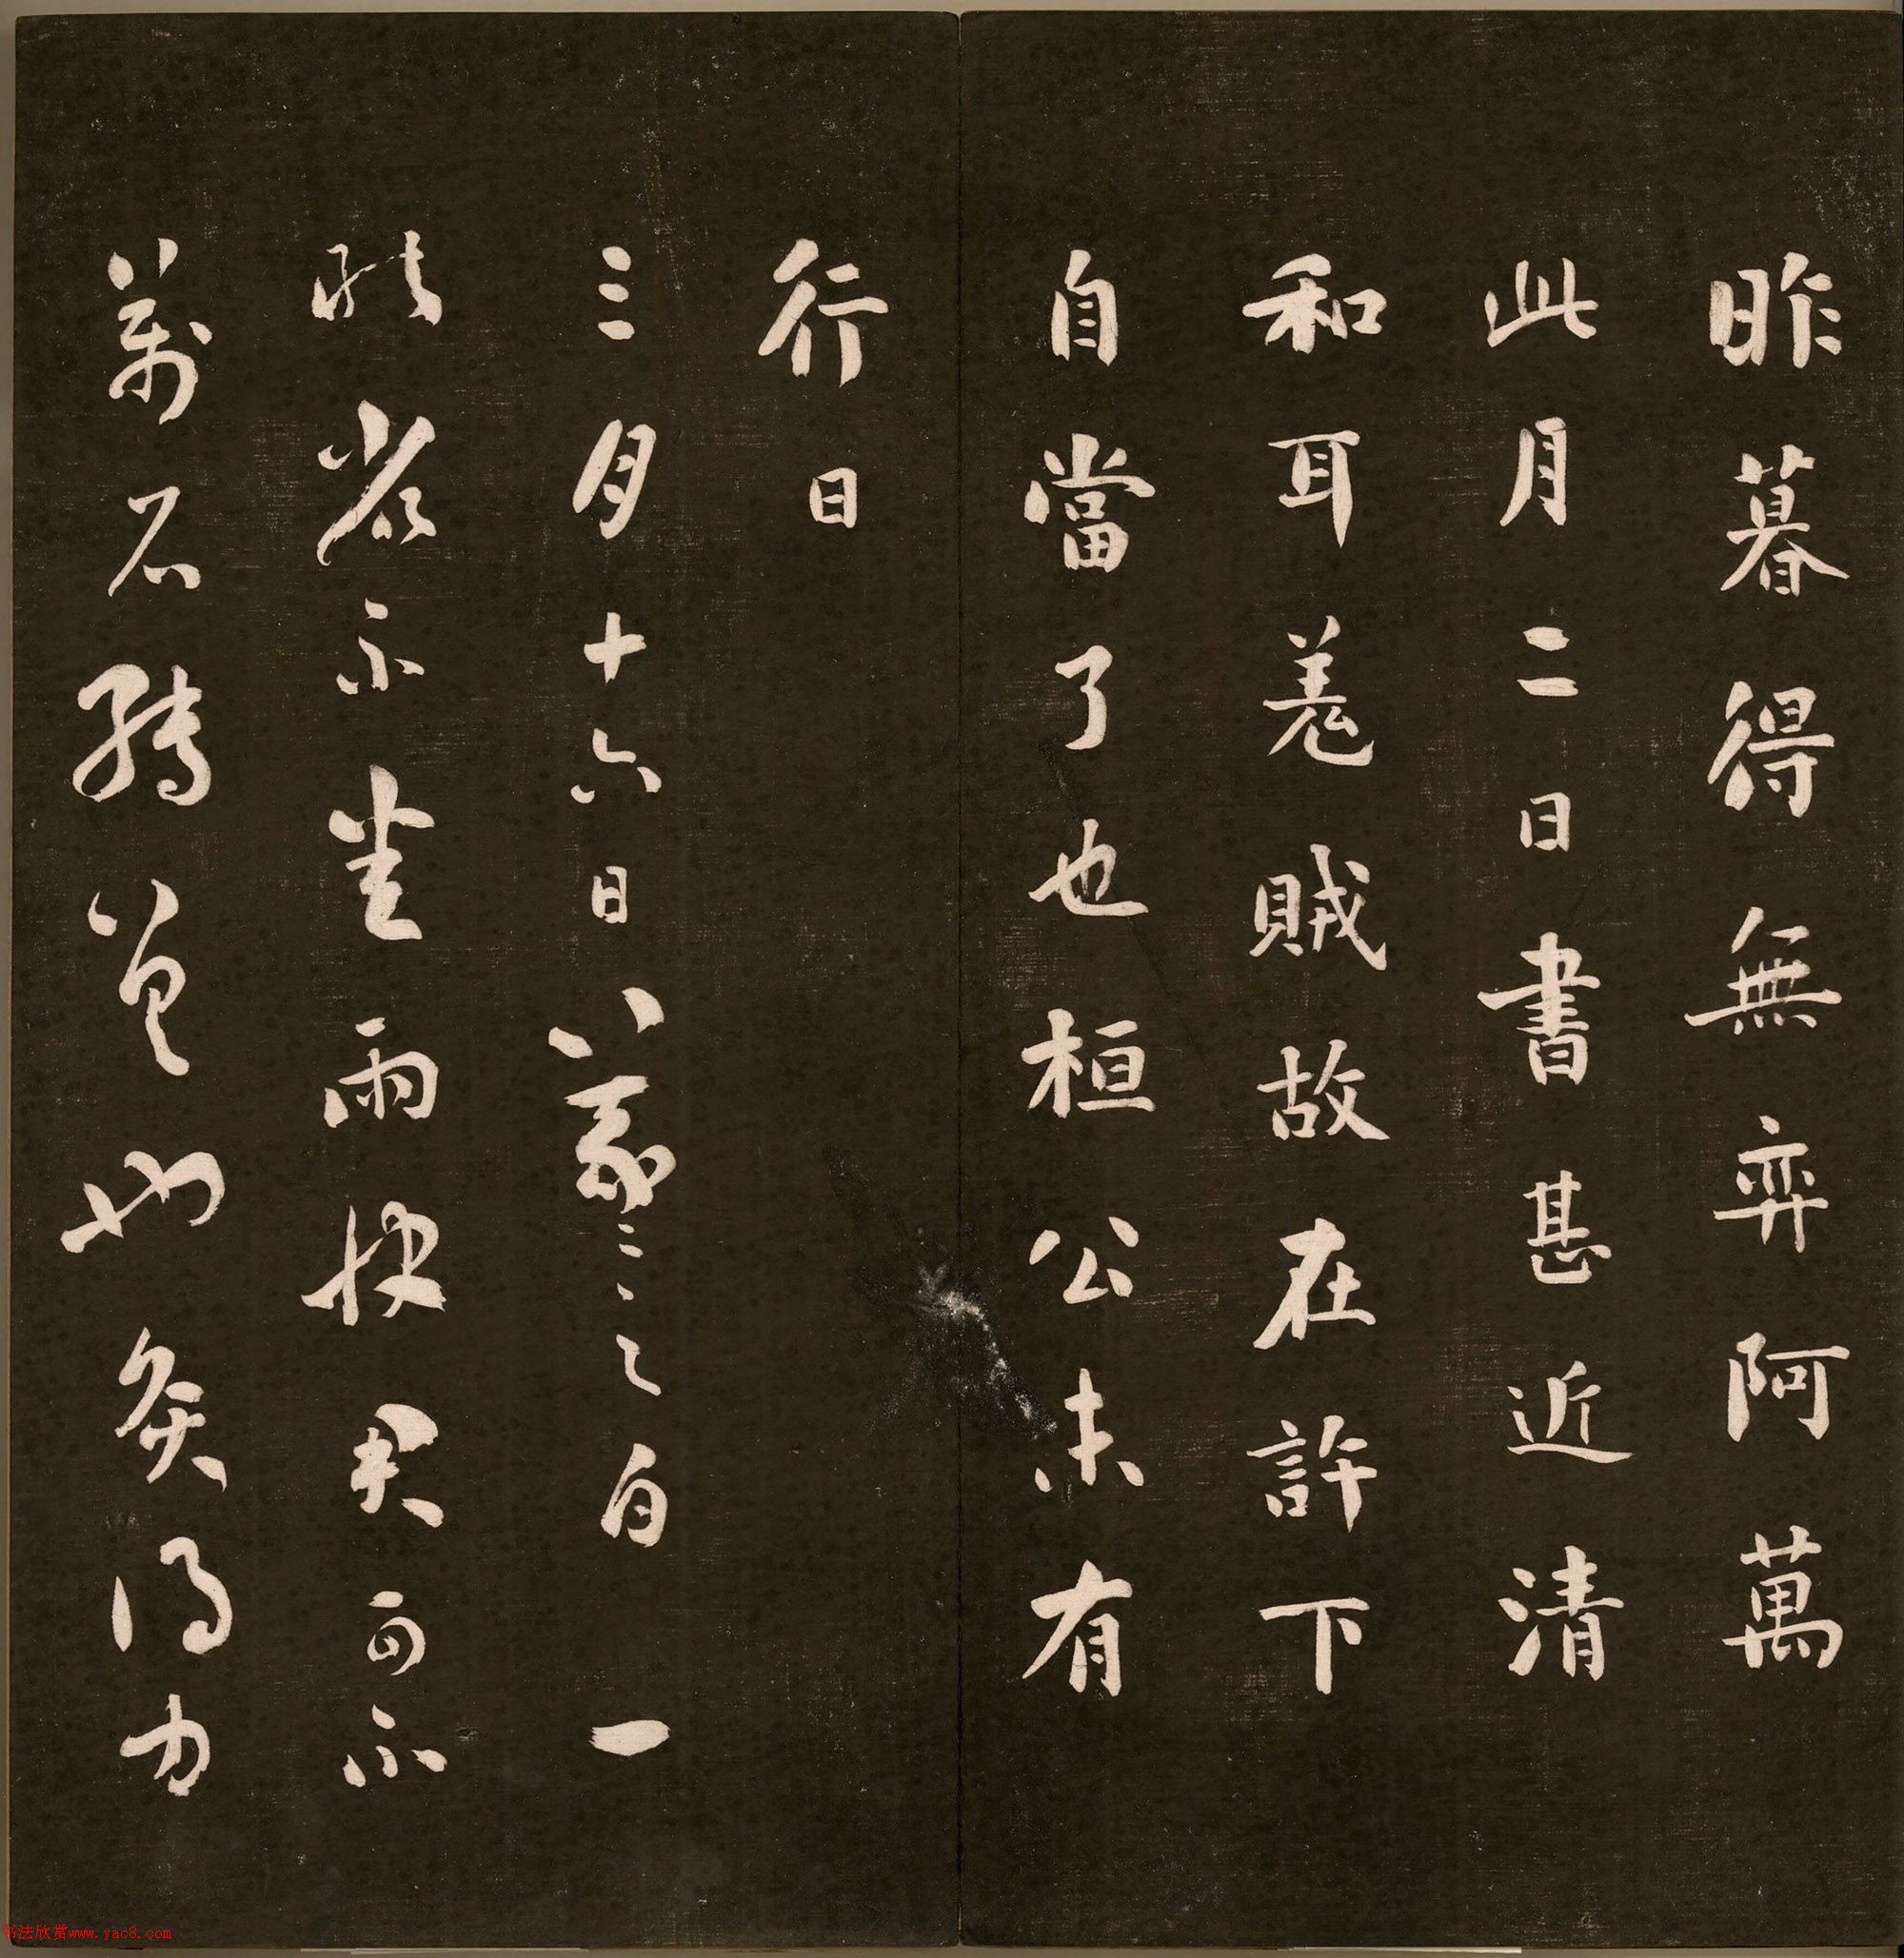 昨暮得無弈阿萬
此月二日書甚近清
和耳羌賊故在許下
自當了也桓公未有
行日
三月十六日羲之白一
省不雨快君可不
萬石轉也灸得力
书法欣赏www.yac8.com